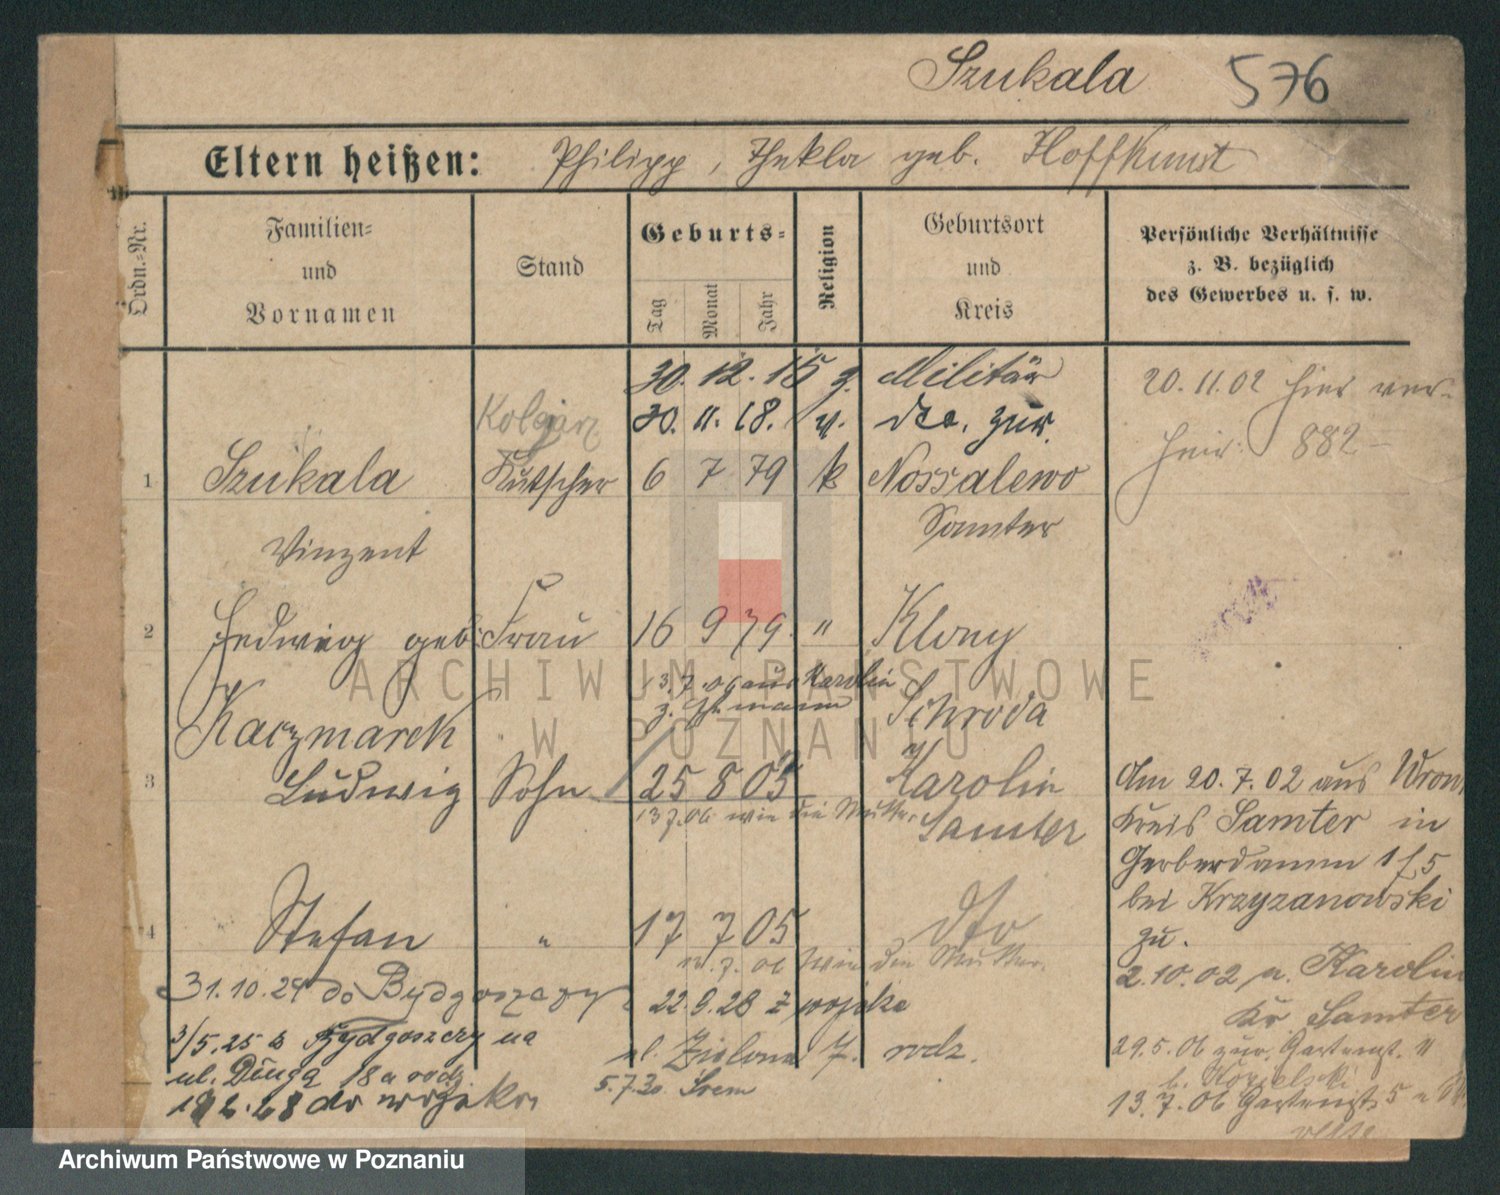 Szukala 576
Eltern heißen: Philipp, Thekla geb. Hoffkunst
Ordn.-Nr.
Familien-
und
Vornamen
Stand
Geburts-
Tag
Monat
Jahr
Religion
Geburtsort
und
Kreis
Persönliche Verhältnisse
z. B. bezüglich
des Gewerbes u. s. w.
30. 12. 15 z. Militär
Kolejarz 30. 11. 18. v. dto. zur.
20. 11. 02 hier ver-
heir. 882
1 Szukala Kutscher 6 7 79 k Nossalewo
Vinzent Samter
2 Hedwig geb. Frau 16 9 79. " Klony
Kaczmarek Schroda
13.7.06 aus Karolin
3 Ludwig Sohn 25 8 03 Karolin
13.7.06 wie die Mutter Samter
Am 20. 7. 02 aus
Kreis Samter in
Gerberdamm 1/5
bei Krzyzanowski
zu.
4 Stefan " 17 7 05 dto
7. 06 wie die Mutter.
2. 10. 02 n. Karolin
Kr Samter
31. 10. 24 do Bydgoszczy 22. 9. 28 z wojska
3/5. 25 z Bydgoszczy na ul. Zielona 7. rodz.
ul. Długa 18a rodz.
5.7.30 Śrem
28 do wojska
29. 5. 06 zur. Gartenst. 11
13. 7. 06 Gartenst. 5
ARCHIWUM PAŃSTWOWE
W POZNANIU
Archiwum Państwowe w Poznaniu